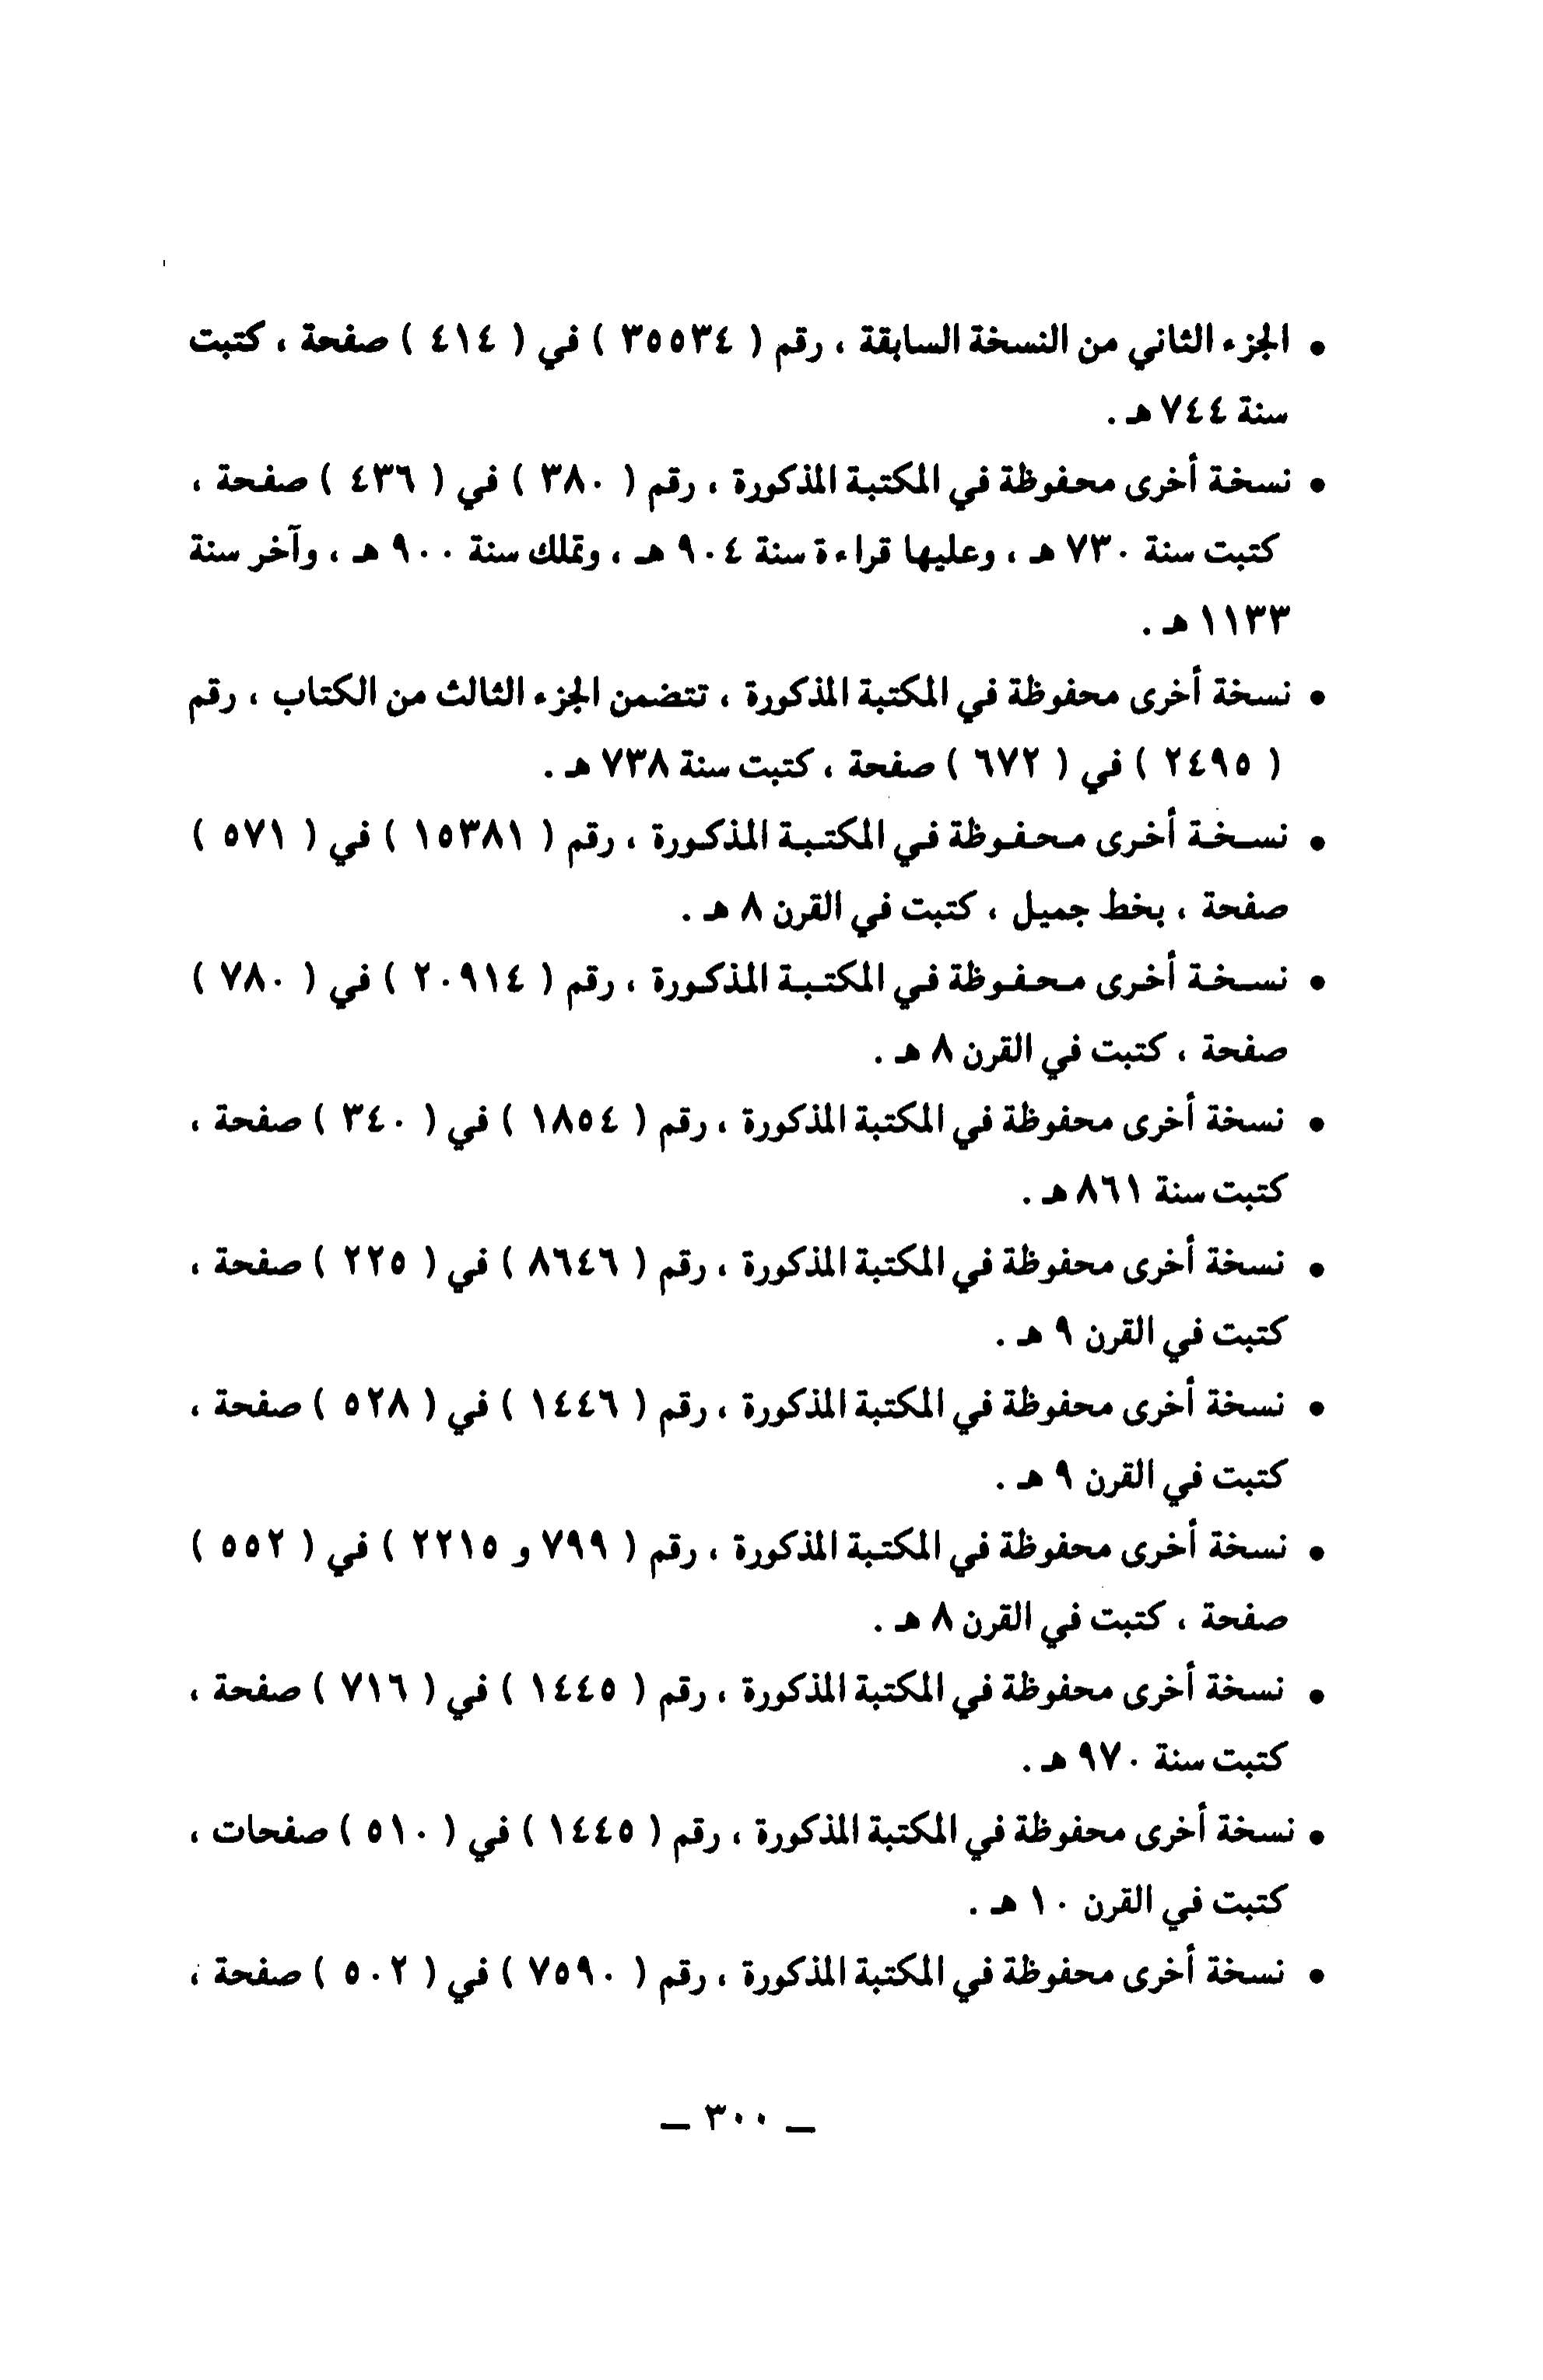 • الجزء الثاني من النسخة السابقة ، رقم ( ٣٥٥٣٤ ) في ( ٤١٤ ) صفحة ، كتبت
سنة ٧٤٤ هـ .
• نسخة أخرى محفوظة في المكتبة المذكورة ، رقم ( ٣٨٠ ) في ( ٤٣٦ ) صفحة ،
كتبت سنة ٧٣٠ هـ ، وعليها قراءة سنة ٩٠٤ هـ ، وتملك سنة ٩٠٠ هـ ، وآخر سنة
١١٣٣ هـ .
• نسخة أخرى محفوظة في المكتبة المذكورة ، تتضمن الجزء الثالث من الكتاب ، رقم
( ٢٤٩٥ ) في ( ٦٧٢ ) صفحة ، كتبت سنة ٧٣٨ هـ .
• نسخة أخرى محفوظة في المكتبة المذكورة ، رقم ( ١٥٣٨١ ) في ( ٥٧١ )
صفحة ، بخط جميل ، كتبت في القرن ٨ هـ .
• نسخة أخرى محفوظة في المكتبة المذكورة ، رقم ( ٢٠٩١٤ ) في ( ٧٨٠ )
صفحة ، كتبت في القرن ٨ هـ .
• نسخة أخرى محفوظة في المكتبة المذكورة ، رقم ( ١٨٥٤ ) في ( ٣٤٠ ) صفحة ،
كتبت سنة ٨٦١ هـ .
• نسخة أخرى محفوظة في المكتبة المذكورة ، رقم ( ٨٦٤٦ ) في ( ٢٢٥ ) صفحة ،
كتبت في القرن ٩ هـ .
• نسخة أخرى محفوظة في المكتبة المذكورة ، رقم ( ١٤٤٦ ) في ( ٥٢٨ ) صفحة ،
كتبت في القرن ٩ هـ .
• نسخة أخرى محفوظة في المكتبة المذكورة ، رقم ( ٧٩٩ و ٢٢١٥ ) في ( ٥٥٢ )
صفحة ، كتبت في القرن ٨ هـ .
• نسخة أخرى محفوظة في المكتبة المذكورة ، رقم ( ١٤٤٥ ) في ( ٧١٦ ) صفحة ،
كتبت سنة ٩٧٠ هـ .
• نسخة أخرى محفوظة في المكتبة المذكورة ، رقم ( ١٤٤٥ ) في ( ٥١٠ ) صفحات ،
كتبت في القرن ١٠ هـ .
• نسخة أخرى محفوظة في المكتبة المذكورة ، رقم ( ٧٥٩٠ ) في ( ٥٠٢ ) صفحة ،
ــ ٣٠٠ ــ